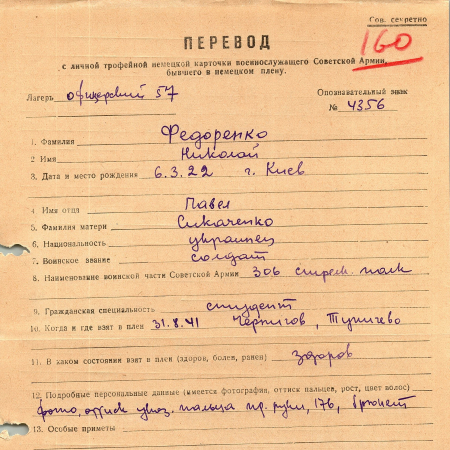 Сов. секретно
160
ПЕРЕВОД
с личной трофейной немецкой карточки военнослужащего Советской Армии,
бывшего в немецком плену.
Лагерь офицерский 57
Опознавательный знак
№ 4356
1. Фамилия Федоренко
2 Имя Николай
3. Дата и место рождения 6.3.22 г. Киев
4 Имя отца Павел
5. Фамилия матери Сикаченко
6. Национальность украинец
7. Воинское звание солдат
8. Наименование воинской части Советской Армии 306 стрел. полк
9. Гражданская специальность студент
10. Когда и где взят в плен 31.8.41 Чернигов,
11. В каком состоянии взят в плен (здоров, болен, ранен) здоров
12. Подробные персональные данные (имеется фотография, оттиск пальцев, рост, цвет волос)
фото, оттиск указ. пальца пр. руки, 176, брюнет
13. Особые приметы